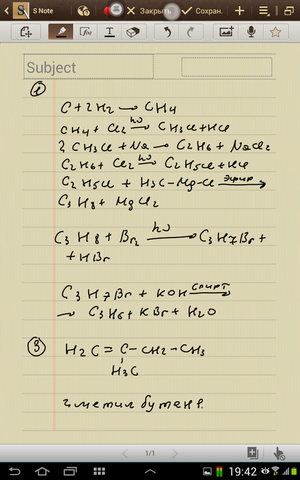 S Note
Закрыть
Сохран.
Subject
1
C + 2H2 → CH4
CH4 + Cl2 hν→ CH3Cl + HCl
2 CH3Cl + Na → C2H6 + NaCl2
C2H6 + Cl2 hν→ C2H5Cl + HCl
C2H5Cl + H3C-Mg-Cl эфир→
C3H8 + MgCl2
C3H8 + Br2 hν→ C3H7Br +
+ HBr
C3H7Br + KOH спирт→
→ C3H6 + KBr + H2O
3
H2C = C - CH2 - CH3
H3C
2 метил бутен 1.
1/1
19:42